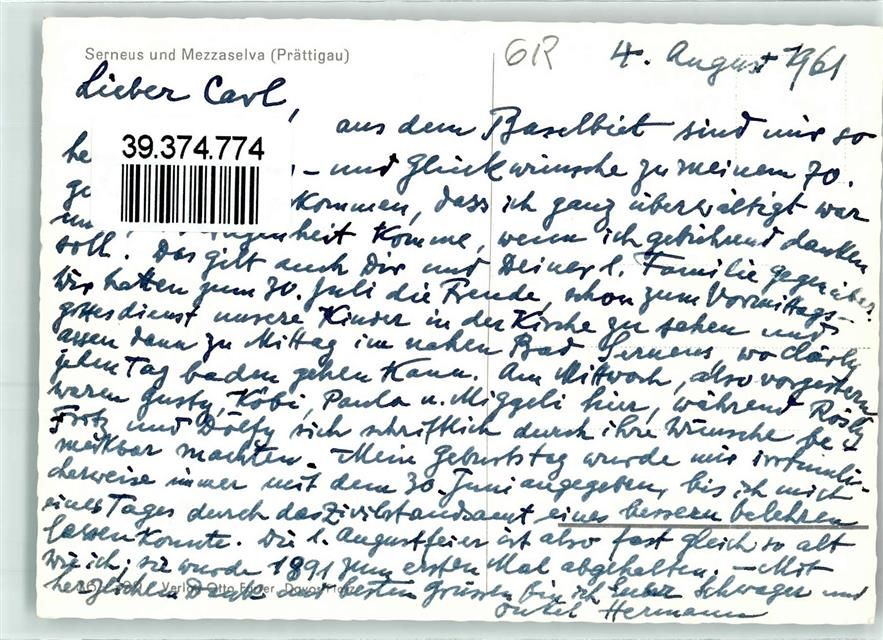 Serneus und Mezzaselva (Prättigau)
6R
4. August 1961
Lieber Carl,
aus dem Baselbiet sind mir so
39.374.774
he
- und Glückwünsche zu meinem 70.
ge
kommen, dass ich ganz überwältigt war
und
komme, wenn ich gebührend danken
soll. Das gilt auch Dir und Deiner l. Familie gegenüber.
Wir hatten zum 30. Juli die Freude, schon zum Vormittags-
gottesdienst unsere Kinder in der Kirche zu sehen und
assen dann zu Mittag im nahen Bad Serneus, wo
jeden Tag baden gehen kann. Am Mittwoch, also vorgestern
waren Gusty, Köbi, Paula u. Miggeli hier, während Rösly
Fritz und Dölfy sich schriftlich durch ihre Wünsche be-
merkbar machten. Mein Geburtstag wurde mir irrtümli-
cherweise immer mit dem 30. Juni angegeben, bis ich mich
eines Tages durch das Zivilstandsamt eines bessern belehren
lassen konnte. Die 1. Augustfeier ist also fast gleich so alt
wie ich; sie wurde 1891 zum ersten Mal abgehalten. - Mit
herzlichem Dank und besten Grüssen bin ich Euer Schwager und
Onkel Hermann